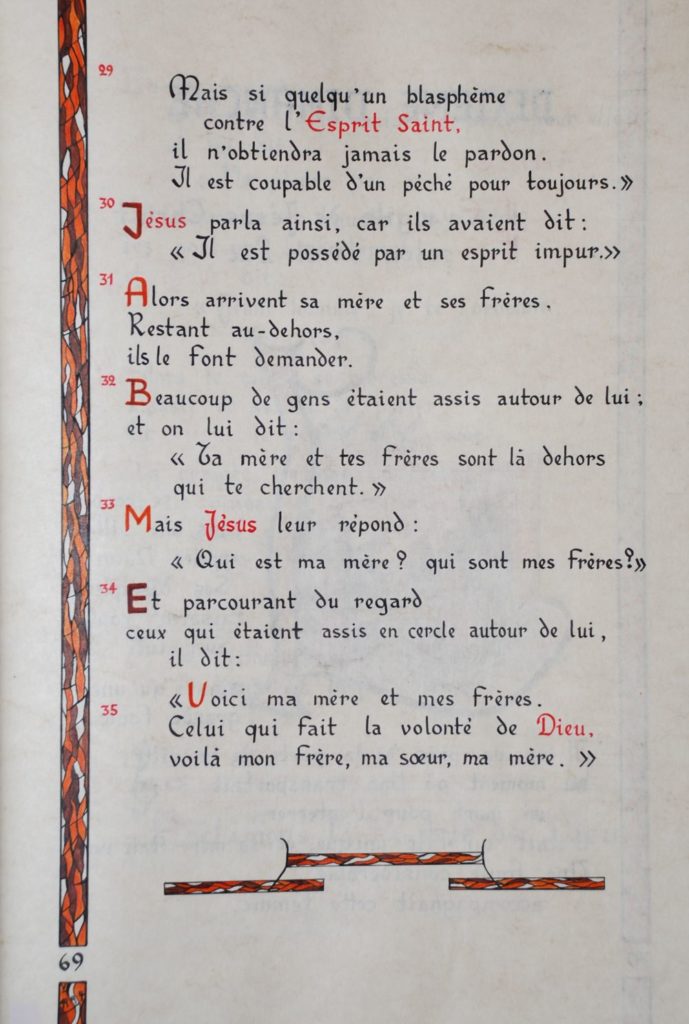 29
Mais si quelqu'un blasphème
contre l'Esprit Saint,
il n'obtiendra jamais le pardon.
Il est coupable d'un péché pour toujours. »
30
Jésus parla ainsi, car ils avaient dit :
« Il est possédé par un esprit impur. »
31
Alors arrivent sa mère et ses frères.
Restant au-dehors,
ils le font demander.
32
Beaucoup de gens étaient assis autour de lui ;
et on lui dit :
« Ta mère et tes frères sont là dehors
qui te cherchent. »
33
Mais Jésus leur répond :
« Qui est ma mère ? qui sont mes frères? »
34
Et parcourant du regard
ceux qui étaient assis en cercle autour de lui,
il dit :
« Voici ma mère et mes frères.
35
Celui qui fait la volonté de Dieu,
voilà mon frère, ma sœur, ma mère. »
69